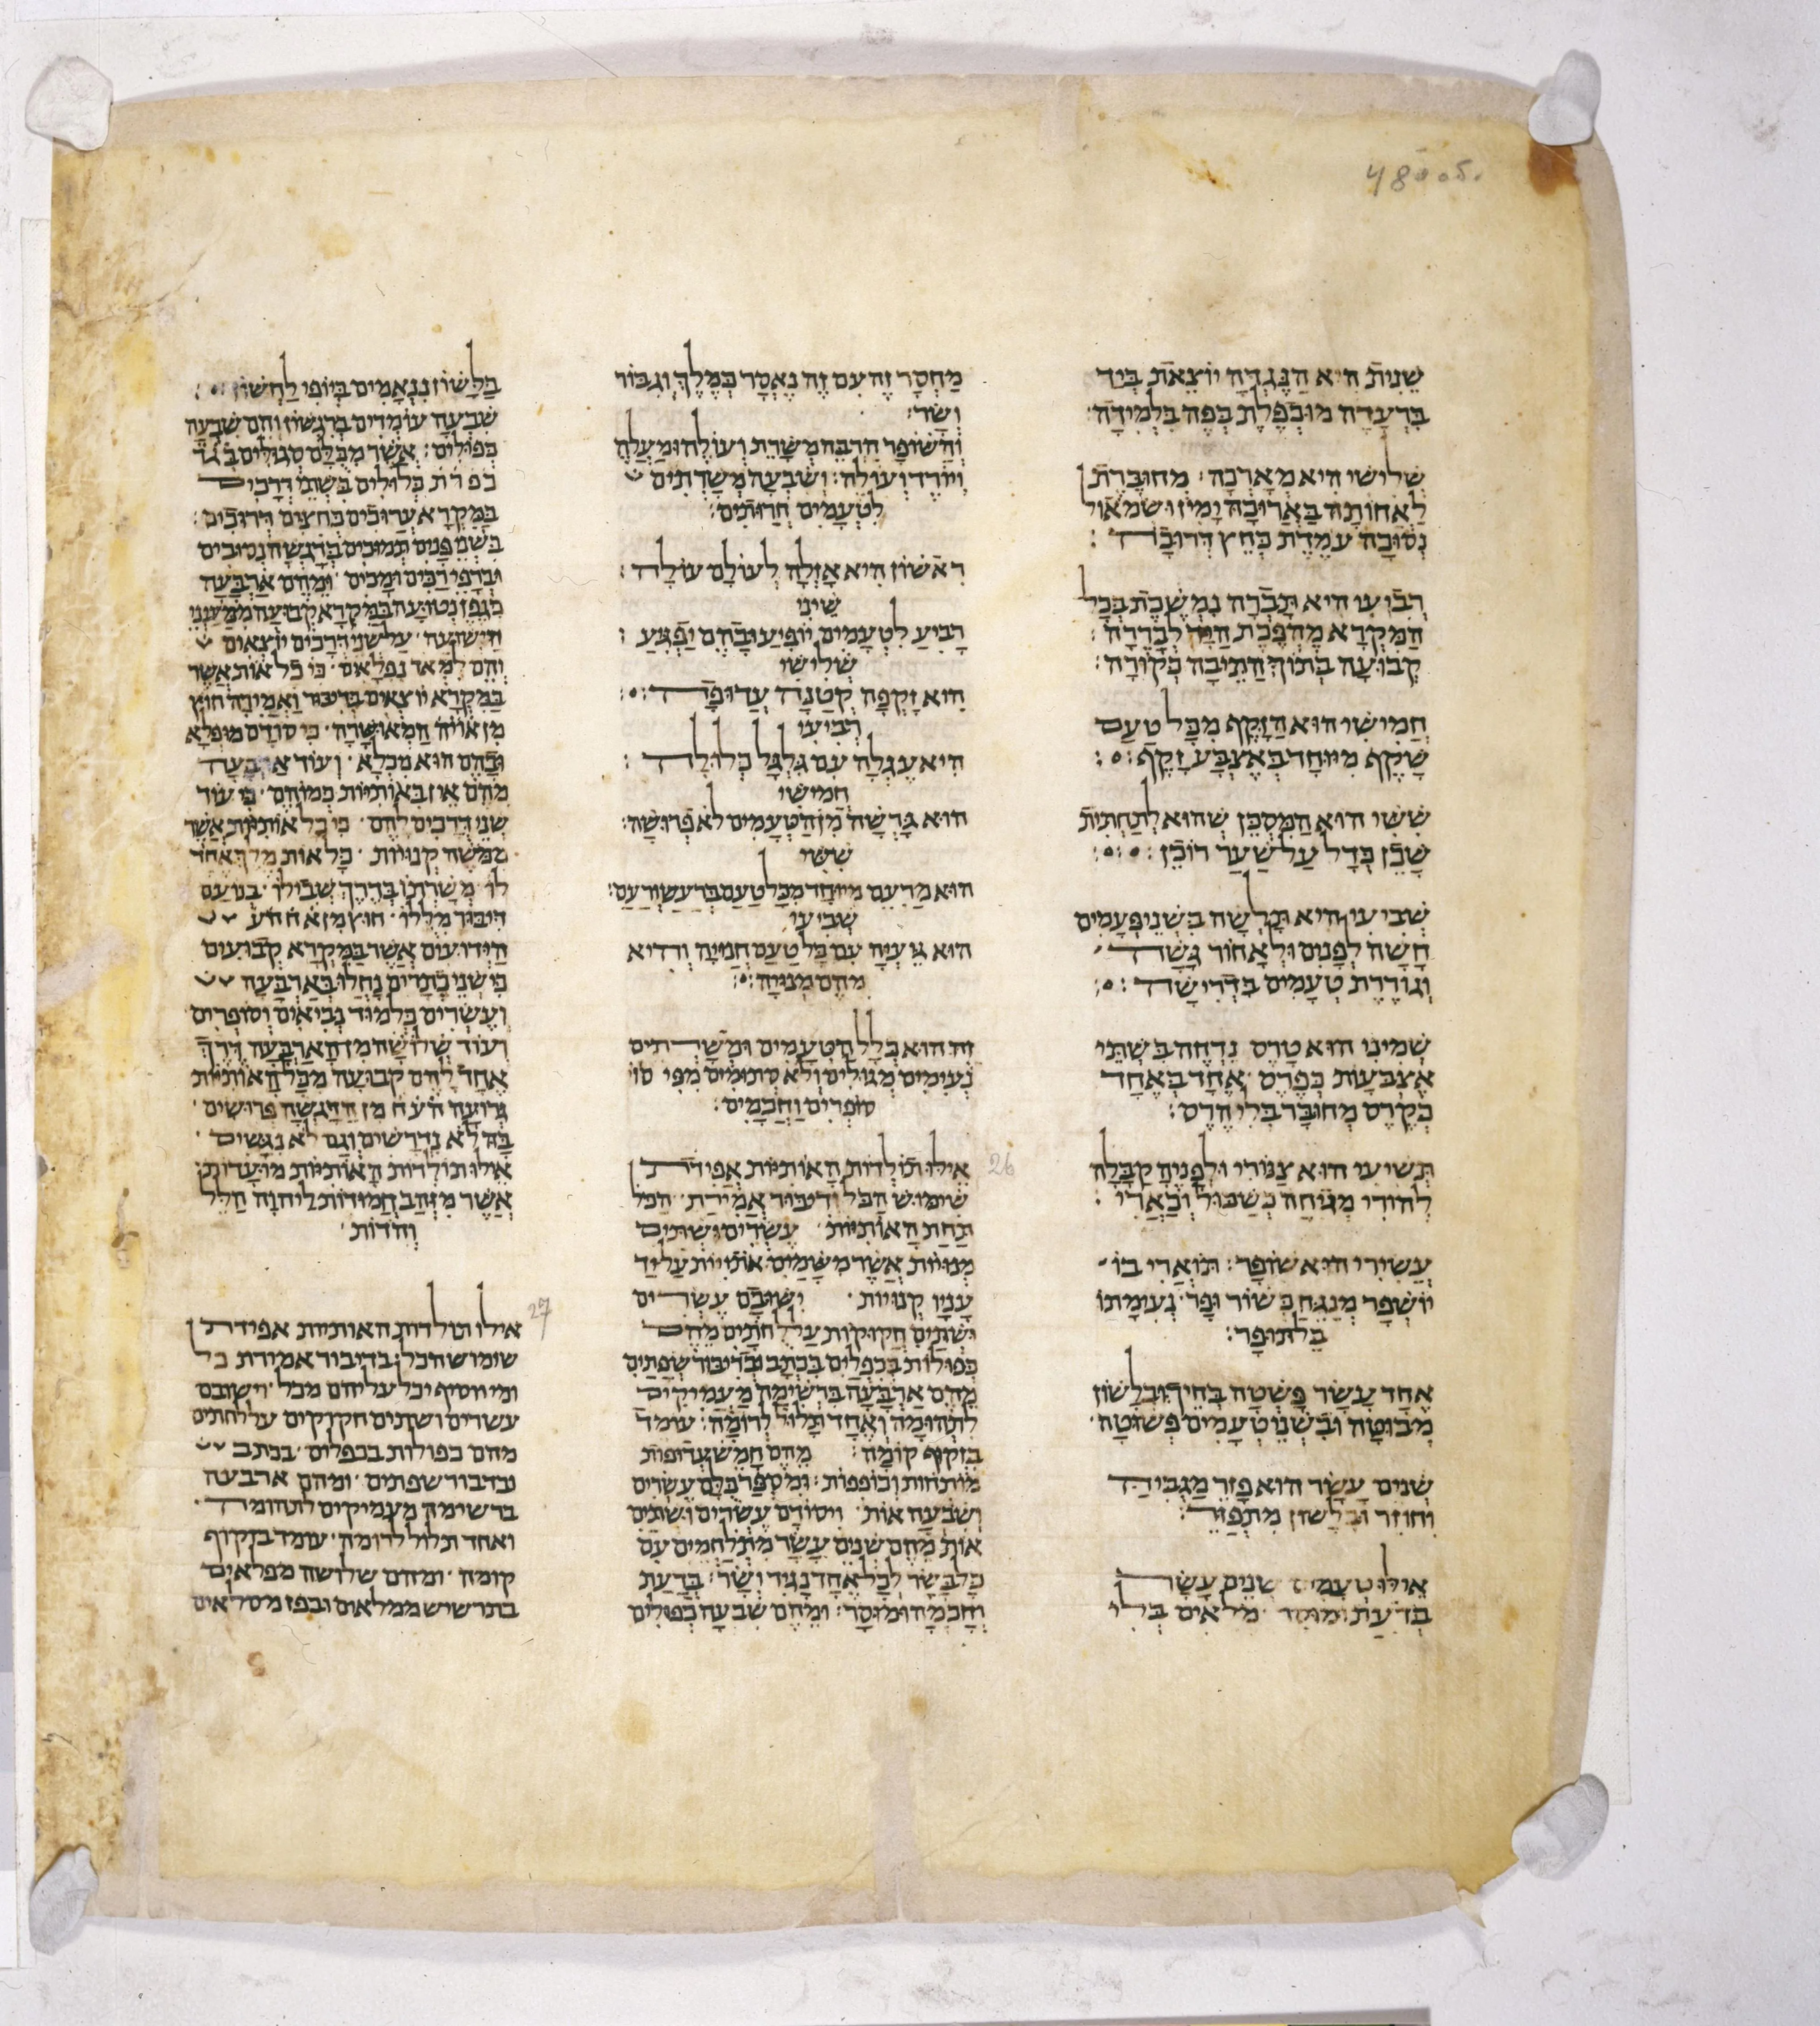 שֵׁנִית הִיא הַנֶּגְדָּה יוֹצֵאת בְּיַד
בִּרְעָדָה מוּכְפֶּלֶת כְּפָה בִּלְמִידָה׃
שְׁלִישִׁי הִיא מְאָרְכָה׃ מחוּבֶּרֶת
לַאֲחוֹתָהּ בַּאֲרוּכָה יָמִין וּשמֹאול
נְסוּבָה עֹמֶדֶת כְּחֵץ דְּרוּכָה׃
רְבִיעִי הִיא תָּבְרָה נִמְשֶׁכֶת בְּכָל
הַמִּקְרָא מֶהְפֶּכֶת
קְבוּעָה בְתוֹךְ הַתֵּיבָה כְּקוֹרָה׃
חֲמִישִׁי הוּא הַזָּקֵף מִכָּל טַעַם
שָׁקֵף מִיוּחָד בְּאֶצְבַּע זָקֵף׃
שִׁשִּׁי הוּא הַמִּסְכֵּן שֶׁהוּא לְתַחְתִּית
שָׁכֵן כְּדָל עַל שַׁעַר רוֹכֵן׃
שְׁבִיעִי הִיא תָּלְשָׁה בִּשְׁנֵי פְּעָמִים
חָשָׁה לְפָנִים וּלְאָחוֹר גָּשָׁה
וְגוֹדֶרֶת טְעָמִים בִּדְרִישָׁה׃
שְׁמִינִי הוּא טָרֵס נִדְחֶה בִּשְׁתֵּי
אֶצְבָּעוֹת כְּפֶרֶס אֶחָד בְּאֶחָד
כְּקֶרֶס מְחוּבָּר בְּלִי הֶרֶס׃
תְּשִׁיעִי הוּא צִנּוֹרִי וּלְפָנֶיהָ קַבָּלָה
לְהוֹרִי מְנִיחָה כְּשַׁכּוּל וְכַאֲרִי׃
עֲשִׂירִי הוּא שׁוֹפָר׃ תּוֹאֲרִי בוֹ
יוֹשְׁפַר מְנַגֵּחַ כְּשׁוֹר וּפָר׃ נְעִימָתוֹ
בַּל תּוּפָר׃
אֶחָד עָשָׂר פָּשְׁטָה בְּחֵיךְ וּבְלָשׁוֹן
מְבוּטָה וּבִשְׁנֵי טְעָמִים פְּשׁוּטָה׃
שְׁנֵים עָשָׂר הוּא פָּזֵר מַגְבִּיהַּ
וְחוֹזֵר וּבְלָשׁוֹן מִתְפַּזֵּר׃
אֵילּוּ טְעָמִים שְׁנֵים עָשָׂר
בְּדַעַת וּמוּסָר מְלֵאִים בְּלִי
מַחְסָר זֶה עִם זֶה נֶאֱסָר כְּמֶלֶךְ וְגִבּוֹר
וְשָׂר׃
וְהַשּׁוֹפָר
וְיוֹרֵד וְעוֹלֶה׃ וְשִׁבְעָה מְשָׁרְתִים
לִטְעָמִים חֲרוּתִים׃
רִאשׁוֹן הִיא אָזְלָה לְעוֹלָם עוֹלָה׃
שֵׁינִי
רָבִיעַ לִטְעָמִים יוֹפִיעַ וּבָהֶם יַפְגִּיעַ׃
שְׁלִישִׁי
הִיא זָקְפָה קְטַנָּה
רְבִיעִי
הִיא עֶגְלָה עִם גִּלְגָּל כְּלוּלָה׃
חֲמִישִׁי
הוּא גָּרְשָׁה מִן הַטְּעָמִים לֹא פְרוּשָׁה׃
שִׁשִּׁי
הוּא מַרְעֵם מיוּחָד מִכָּל טַעַם בְּרַעַשׁ וְרַעַם׃
שְׁבִיעִי
הוּא גֵּעְיָה עִם כָּל טַעַם חֲנִיָּה וְדִיא
מֵהֶם מְנוּיָה׃
זֶה הוּא כְּלַל הַטְּעָמִים וּמְשָׁרְתִים
נְעִימִים מְגוּלִים וְלֹא סְתוּמִים מִפִּי סו
סוֹפְרִים וַחֲכָמִים׃
26
אֵילּוּ תּוֹלְדוֹת הָאוֹתִיּוֹת אֲפִידַת
שִׁימּוּשׁ הַכֹּל וְדִיבּוּר אֲמִירַת הַכֹּל
תַּחַת הָאוֹתִיּוֹת עֶשְׂרִים וּשְׁתַּיִם
מְנוּיוֹת אֲשֶׁר מִשָּׁמַיִם אוֹתִיּוֹת עַל יַד
עָנָיו קְנוּיוֹת׃ וְיִשּׁוּבָם עֶשְׂרִים
וּשְׁתַּיִם חֲקוּקוֹת עַל לֻחֹתַיִם מֵהֶם
כְּפוּלוֹת בְּכִפְלַיִם בִּכְתָב וּבְדִיבּוּר שְׂפָתַיִם
מֵהֶם אַרְבָּעָה בִּרְשִׁימָה מַעֲמִיקִים
לִתְהוֹמָה וְאֶחָד תָּלוּל לְרוּמָה׃ עוֹמֵד
בִּזְקוּף קוֹמָה׃ מֵהֶם חָמֵשׁ עֲדִיפוֹת
מוֹתָחוֹת וְכוֹפְפוֹת׃ וּמִסְפַּר כֻּלָּם עֶשְׂרִים
וְשִׁבְעָה אוֹת׃ וִיסוֹדָם עֶשְׂרִים וּשְׁתַּיִם
אוֹת מֵהֶם שְׁנֵים עָשָׂר מִתְלַחֲמִים עִם
כָּל בָּשָׂר לְכָל אֶחָד נָגִיד וְשָׂר׃ בְּדַעַת
וְחָכְמָה וּמוּסָר׃ וּמֵהֶם שִׁבְעָה כְּפוּלִים
בַּלָּשׁוֹן נִנְאָמִים בְּיוֹפִי לַחְשׁוֹן׃
שִׁבְעָה עוֹמְדִים בְּרִגְשׁוֹן וְהֵם שִׁבְעָה
כְּפוּלִים׃ אֲשֶׁר מִכֻּלָּם סְגוּלִים בְּגַד
כפרת כְּלוּלִים בִּשְׁתֵּי דְרָכִים
בַּמִּקְרָא עֲרוּכִים כְּחִצִּים דְּרוּכִים׃
בִּשְׁנֵי פָנִים תְּמוּכִים בְּדָגְשָׁה נְסוּכִים
וּבְרָפִי רַכִּים וּמָכִים׃ וּמֵהֶם אַרְבָּעָה
כְּגֶפֶן נְטוּעָה בַּמִּקְרָא קְבוּעָה מִמַּעַיְנֵי
הַיְשׁוּעָה׃ עַל שְׁנֵי דְרָכִים יוֹצְאִים
וְהֵם לִמְאֹד נִפְלָאִים׃ כִּי כֹל אוֹת אֲשֶׁר
בַּמִּקְרָא יוֹצְאִים בְּדִיבּוּר וַאֲמִירָה חוּץ
מִן אוֹיֹה הַמְאוּשָׁרָה׃ כִּי סוֹדָם מוּפְלָא
וּבָהֶם הוּא מִכְלָא׃ וְעוֹד אַרְבָּעָה
מֵהֶם אֵין בָּאוֹתִיּוֹת כְּמוֹהֶם׃ כִּי עוֹד
שְׁנֵי דְרָכִים לָהֶם׃ כִּי כָל אוֹתִיּוֹת אֲשֶׁר
מִמֹּשֶׁה קְנוּיוֹת׃ כָּל אוֹת מֶלֶךְ אֶחָד
לוֹ מְשָׁרְתוֹ בְּדֶרֶךְ שְׁבִילוֹ׃ בְּנוֹעַם
דִּיבּוּר מִלֻּלוֹ׃ חוּץ מִן אֹחֹהֹעֹ
הַיְדוּעִים אֲשֶׁר בַּמִּקְרָא קְבוּעִים
כִּי שְׁנֵי כְתָרִים נָחֲלוּ בְּאַרְבָּעָה
וְעֶשְׂרִים בְּלִמּוּד נְבִיאִים וְסוֹפְרִים
וְעוֹד שְׁלֹשָׁה מִן הָאַרְבָּעָה דֶּרֶךְ
אֶחָד לָהֶם קְבוּעָה מִכָּל הָאוֹתִיּוֹת
גְּרוּעָה הֹעֹחֹ מִן הַדָּגְשָׁה פְּרוּשִׁים׃
בָּהּ לֹא נִדְרָשִׁים וְגַם לֹא נִגָּשִׁים׃
אֵילּוּ תוֹלְדוֹת הָאוֹתִיּוֹת מוּעָדוֹת׃
אֲשֶׁר מִזָּהָב חֲמוּדוֹת לַיהוָה חַלֵּל
וְהֹדוֹת׃
27
אילו תולדות האותיות אפידת
שימוש הכל׃ בדיבור אמירת כל
ומי יוסיף יכל עליהם מכל׃ וישובם
עשרים ושתים חקוקים על לחתים
מהם כפולות בכפלים׃ בכתב
ובדבור שפתים׃ ומהם ארבעה
ברשימה מעמיקים לתהומה׃
ואחד תלול לרומה׃ עומד בזקוף
קומה׃ ומהם שלושה מפלאים
בתרשיש ממלאים ובפז מסלאים